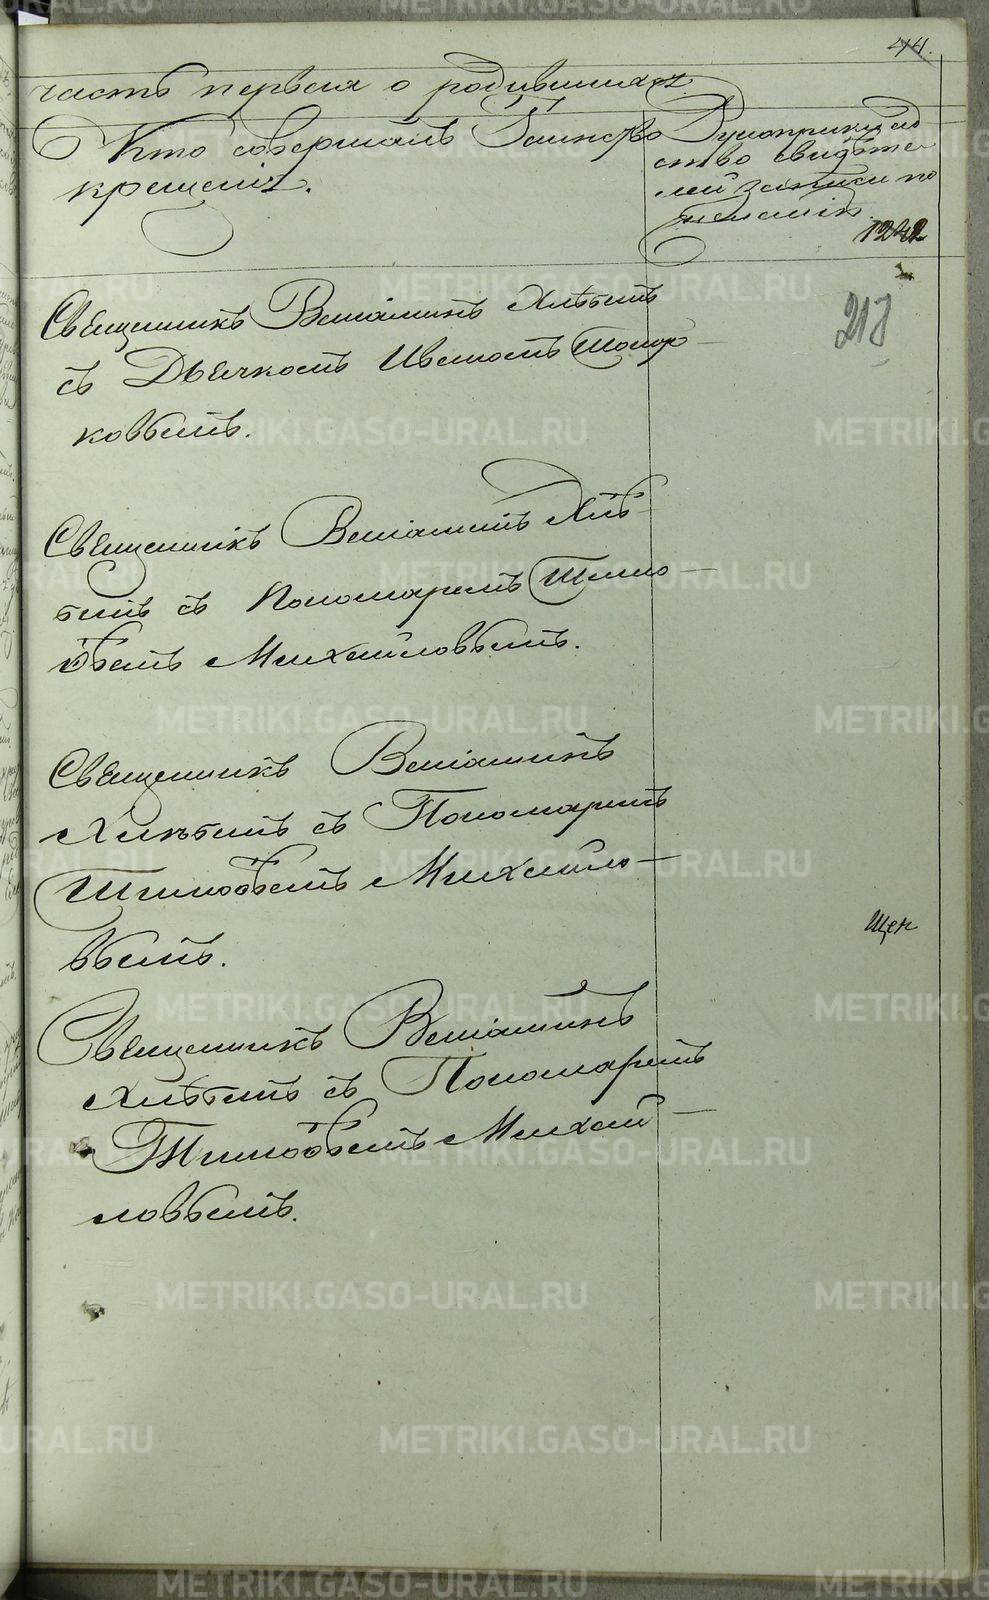 44.
часть первая о родившихся
Кто совершалъ Таинство
крещенія.
Рукоприкладство
свидѣте
лей записи по
желанію.
1242
217
Священникъ Веніаминъ Хлѣбинъ
съ Дьячкомъ Иваномъ Топор
ковымъ.
Священникъ Веніаминъ Хлѣ
бинъ съ Пономаремъ Тимо
ѳеемъ Михайловымъ.
Священникъ Веніаминъ
Хлѣбинъ съ Пономаремъ
Тимоѳеемъ Михайло
вымъ.
Священникъ Веніаминъ
Хлѣбинъ съ Пономаремъ
Тимоѳеемъ Михай
ловымъ.
METRIKI.GASO-URAL.RU